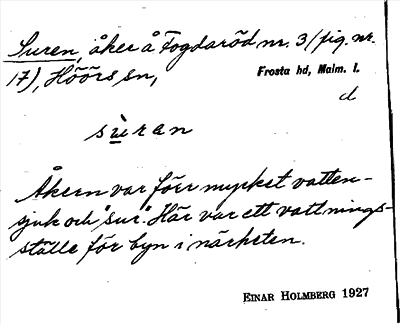 Suren, åker å Fogdaröd nr. 3 (fig. nr.
17), Höörs sn,
Frosta hd, Malm. l.
d
sùran
Åkern var förr mycket vatten-
sjuk och "sur". Här var ett vattnings-
ställe för byn i närheten.
EINAR HOLMBERG 1927